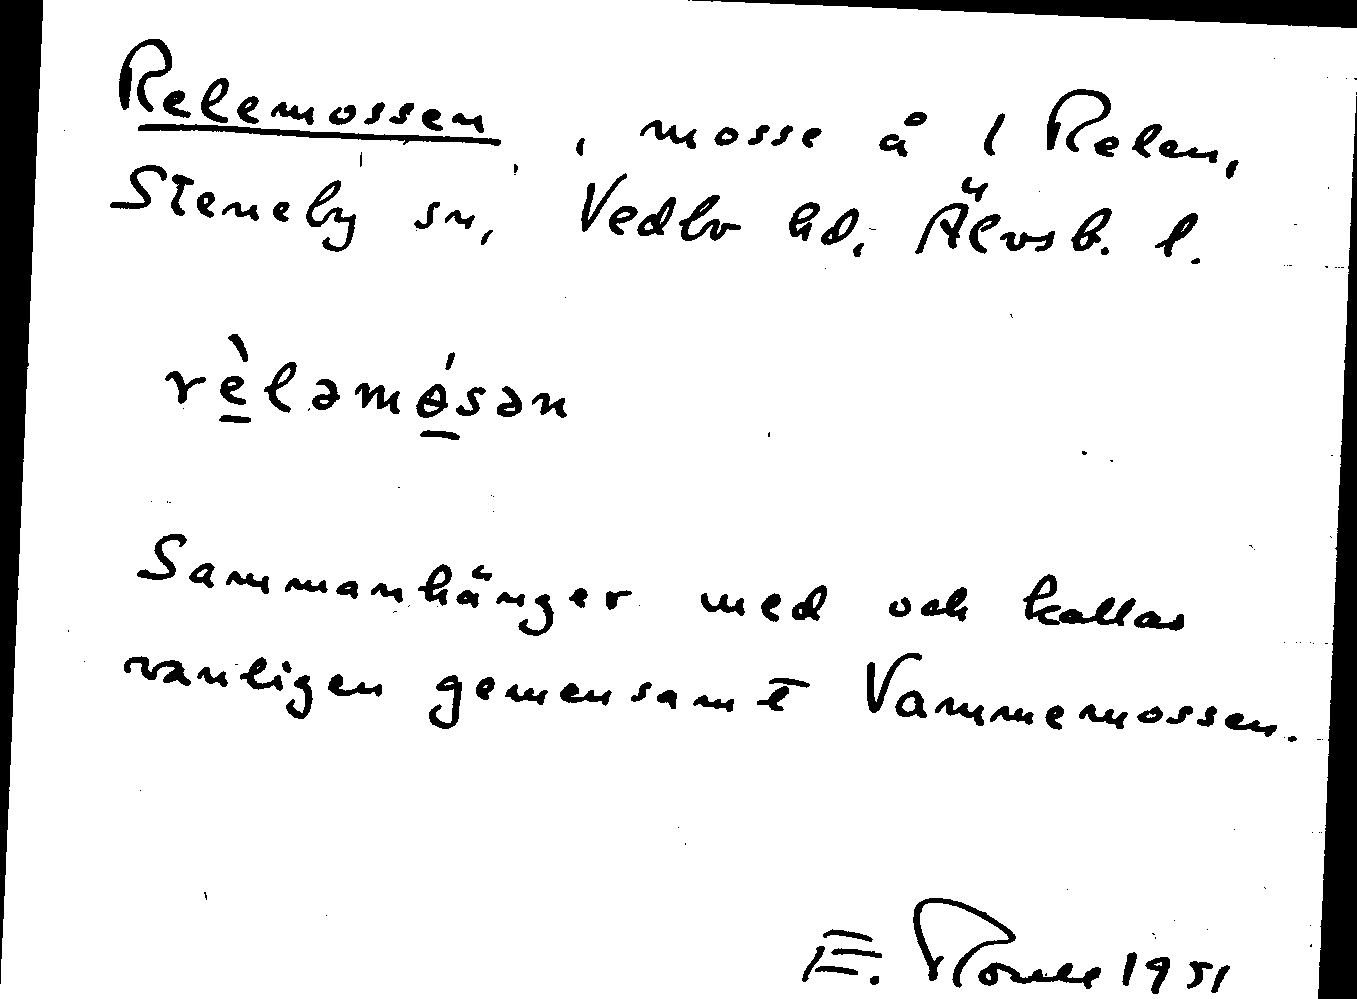 Relemossen, mosse å 1 Relen,
Steneby sn, Vedbo hd, Älvsb. l.
rè̱ləmɵ̱́sən
Sammanhänger med och kallas
vanligen gemensamt Vammemossen.
E. 1951